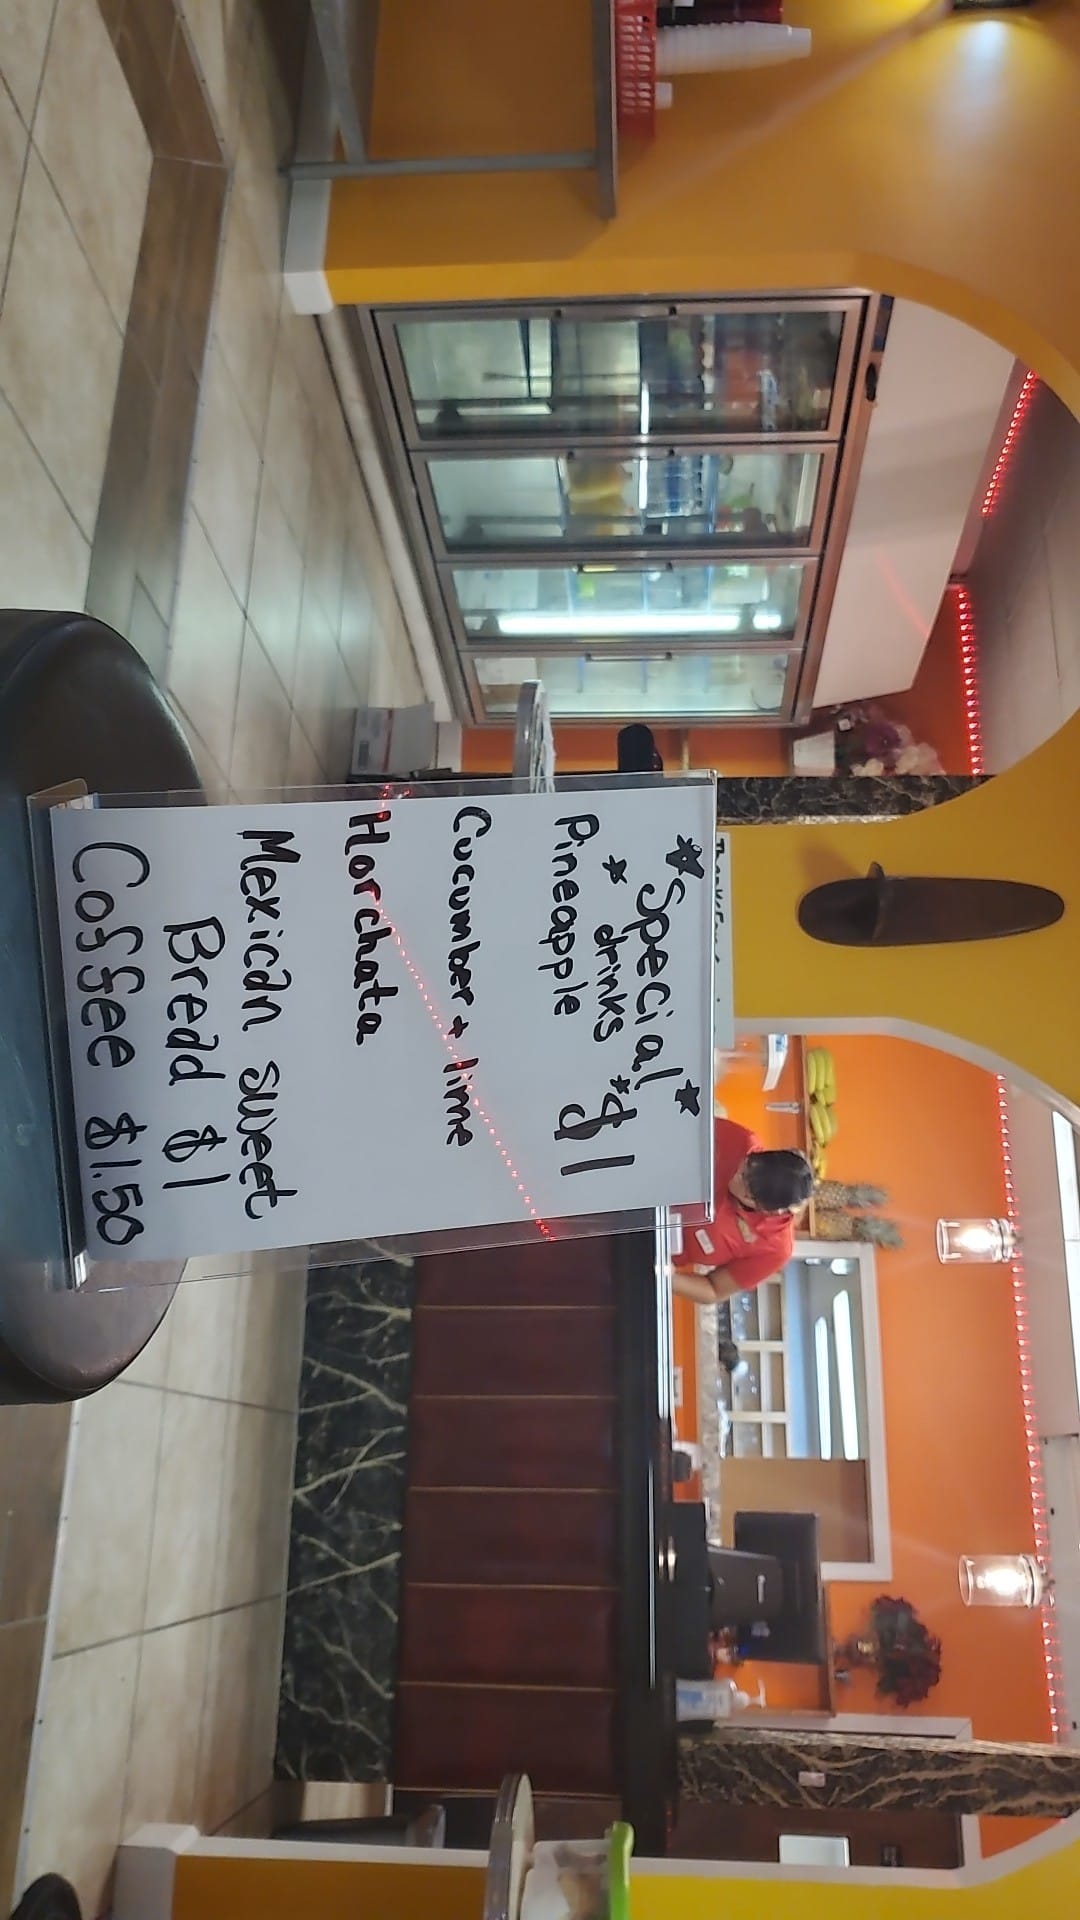 *Special*
* drinks *
Pineapple $1
Cucumber + lime
Horchata
Mexican sweet
Bread $1
Coffee $1.50